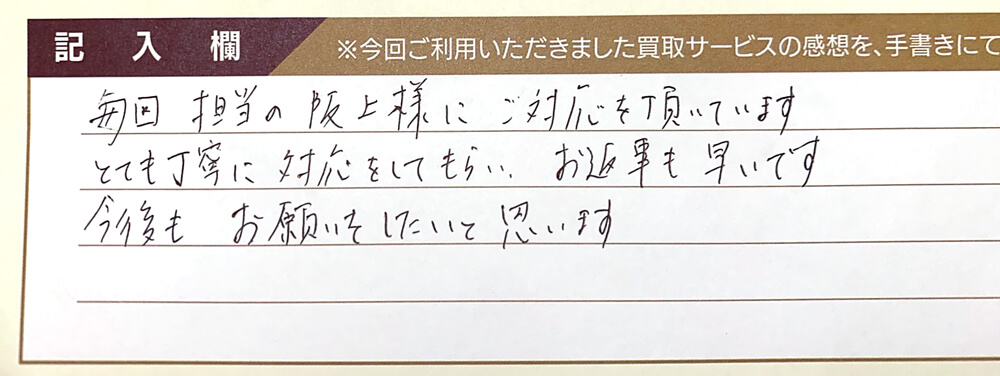 記入欄
※今回ご利用いただきました買取サービスの感想を、手書きにて
毎回 担当の 阪上様に ご対応を頂いています
とても丁寧に 対応をしてもらい、 お返事も 早いです
今後も お願いをしたいと 思います